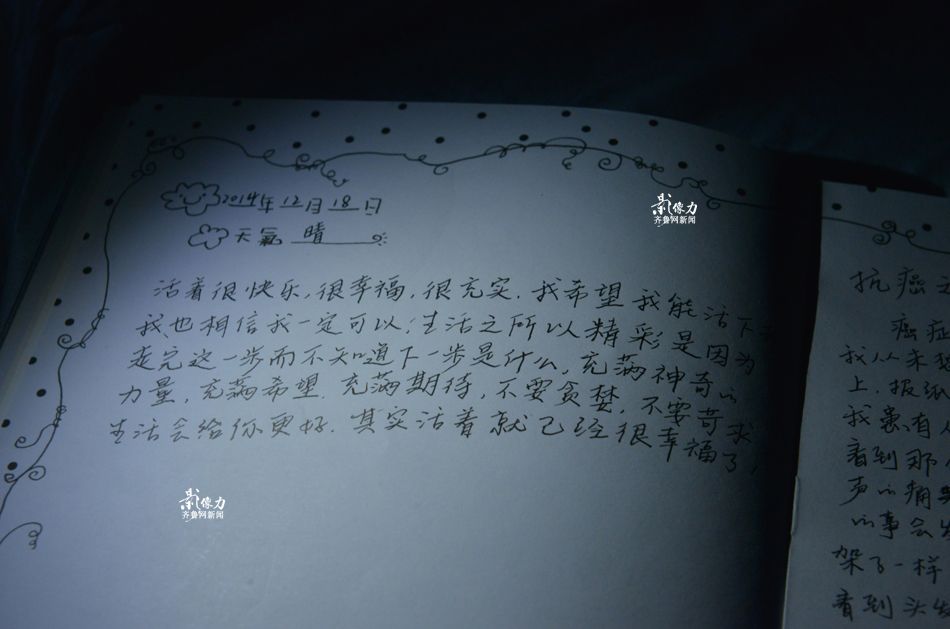 2014年12月18日
天氣 晴
活着很快乐,很幸福,很充实.我希望我能活下
我也相信我一定可以.生活之所以精彩是因为
走完这一步而不知道下一步是什么,充满神奇的
力量,充满希望.充满期待,不要贪婪,不要苛求
生活会给你更好.其实活着就已经很幸福了,
影像力
齐鲁网新闻
影像力
齐鲁网新闻
抗癌之
癌症
我从来
上.报纸
我患有
看到那
声的痛
的事会
架了一样
看到头发